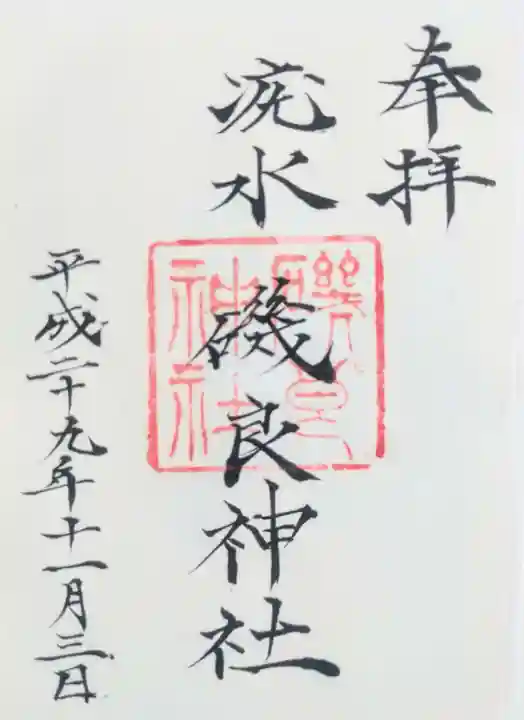 奉拝
疣水
磯良神社
平成二十九年十一月三日
磯良
神社